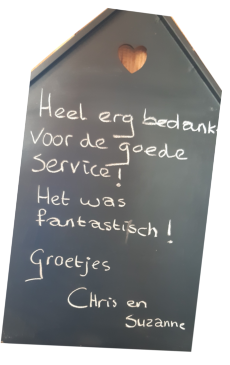 Heel erg bedank
voor de goede
service!
Het was
fantastisch!
Groetjes
Chris en
Suzanne